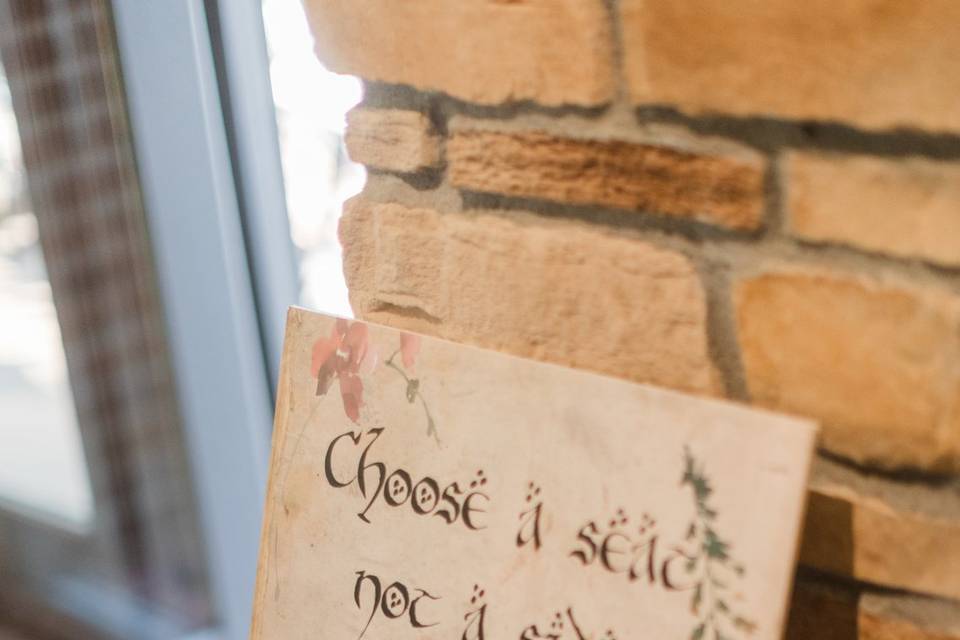 Choose a seat
not a